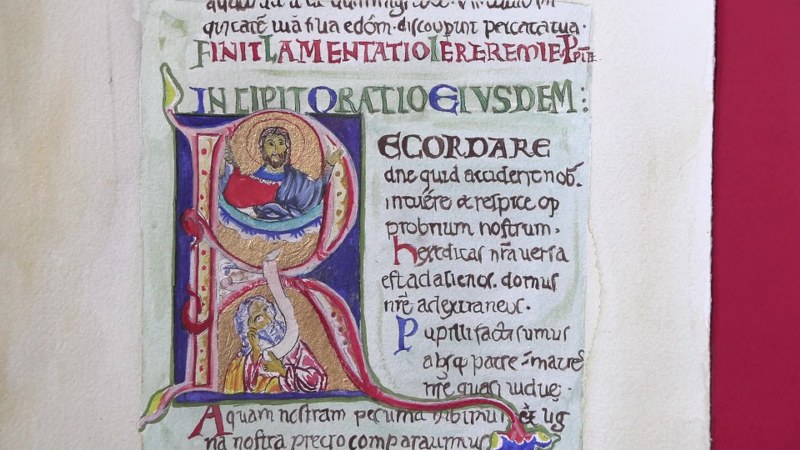 filia edóm. discoupint peccata tua.
FINIT LAMENTATIO IEREREMIE
INCIPIT ORATIO EIUSDEM:
RECORDARE
dne quid acciderit nob.
intuére & respice op
probrium nostrum.
hereditas nr̄a uersa
est ad alienos. domus
nr̄e ad extraneos.
Pupilli facti sumus
absq; patre. matres
nr̄e quasi uiduę.
Aquam nostram pecunia bibimus
na nostra precio comparauimus